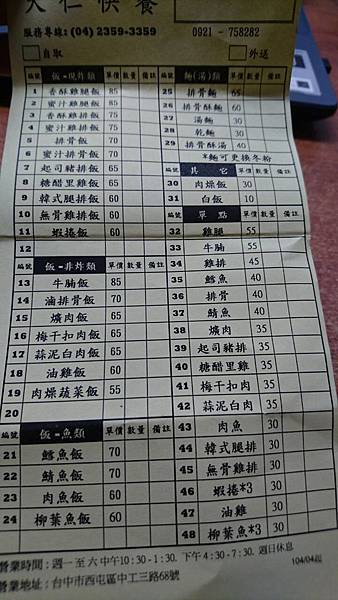 大仁快餐
服務專線: (04) 2359-3359
0921 - 758282
自取
外送
編號 飯-現炸類 單價 數量 備註
1 香酥雞腿飯 85
2 蜜汁雞腿飯 85
3 香酥雞排飯 75
4 蜜汁雞排飯 75
5 排骨飯 65
6 蜜汁排骨飯 65
7 起司豬排飯 65
8 糖醋里雞飯 65
9 韓式腿排飯 60
10 無骨雞排飯 60
11 蝦捲飯 60
12
編號 飯-非炸類 單價 數量 備註
13 牛腩飯 85
14 滷排骨飯 70
15 爌肉飯 65
16 梅干扣肉飯 65
17 蒜泥白肉飯 65
18 油雞飯 60
19 肉燥蔬菜飯 55
20
編號 飯-魚類 單價 數量 備註
21 鱈魚飯 70
22 鯖魚飯 70
23 肉魚飯 60
24 柳葉魚飯 60
編號 麵(湯)類 單價 數量 備註
25 排骨麵 65
26 排骨酥麵 60
27 湯麵 30
28 乾麵 30
29 排骨酥湯 40
*麵可更換冬粉
編號 其 它 單價 數量 備註
30 肉燥飯 30
31 白飯 10
編號 單 點 單價 數量 備註
32 雞腿 55
33 牛腩 55
34 雞排 45
35 鱈魚 40
36 排骨 40
37 鯖魚 40
38 爌肉 35
39 起司豬排 35
40 糖醋里雞 35
41 梅干扣肉 35
42 蒜泥白肉 35
43 肉魚 30
44 韓式腿排 30
45 無骨雞排 30
46 蝦捲*3 30
47 油雞 30
48 柳葉魚*3 30
營業時間：週一至六 中午10 : 30 - 1:30. 下午 4:30 - 7:30. 週日休息
104/04起
營業地址：台中市西屯區中工三路68號